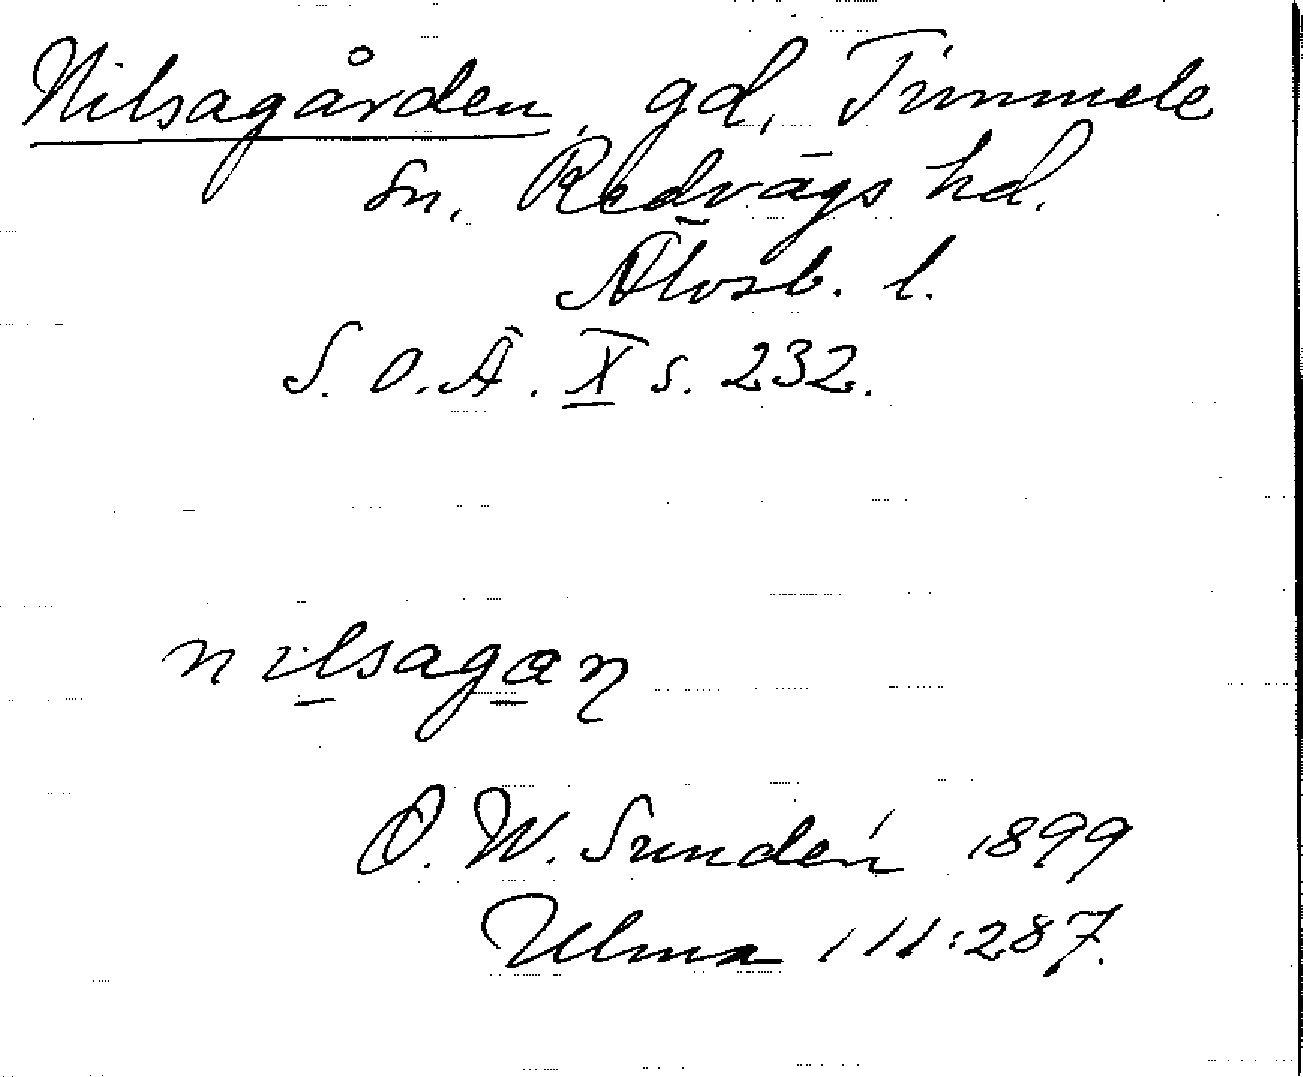 Nilsagården, gd, Timmele
sn. Redvägs hd.
Älvsb. l.
S. O. Ä. X s. 232.
nilsagaŋ
D. W. Sundén 1899
Ulma 111:287.